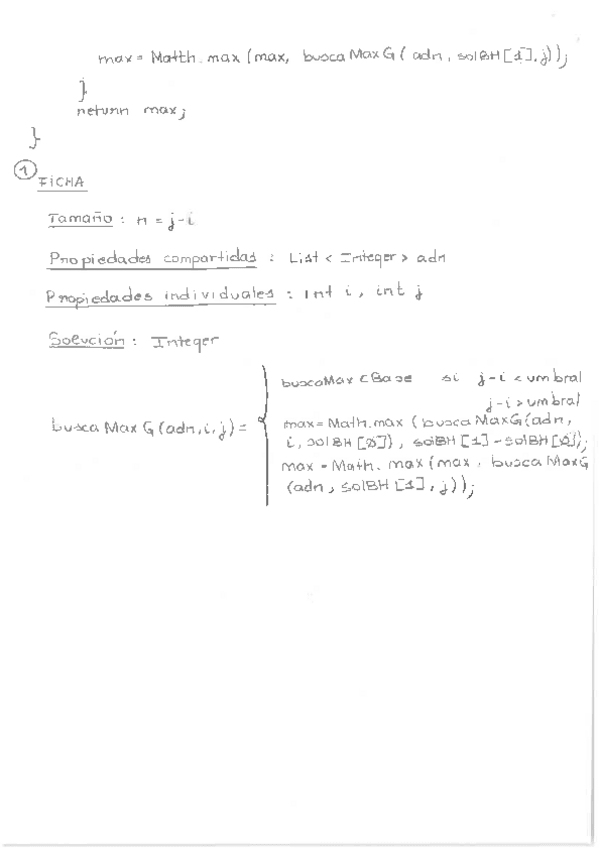 max = Math.max (max, buscaMaxG ( adn, solBH[1], j));
}
return max;
}
① FICHA
Tamaño : n = j-i
Propiedades compartidas : List < Integer > adn
Propiedades individuales : int i, int j
Solución : Integer
buscaMaxCBase si j-i < umbral
j-i > umbral
buscaMaxG (adn, i, j) = { max = Math.max (buscaMaxG(adn,
i, solBH [0]), solBH [1] - solBH [0]);
max = Math. max (max, buscaMaxG
(adn, solBH [1], j));